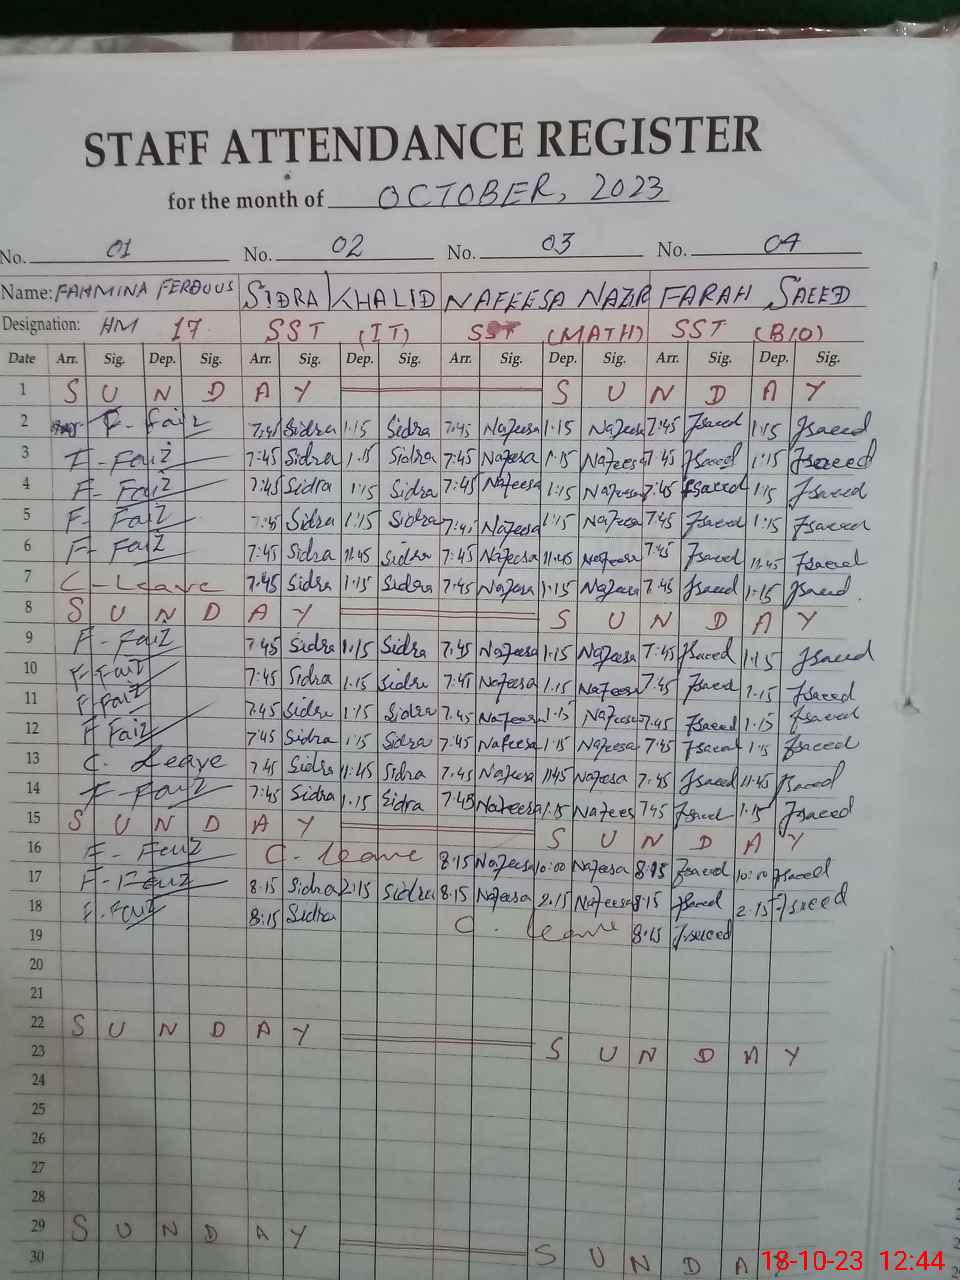 STAFF ATTENDANCE REGISTER
for the month of OCTOBER, 2023
No. 01 No. 02 No. 03 No. 04
Name: FAHMINA FERDOUS SIDRA KHALID NAFEESA NAZIR FARAH SAEED
Designation: HM 17 SST (IT) SST (MATH) SST (BIO)
Date Arr. Sig. Dep. Sig. Arr. Sig. Dep. Sig. Arr. Sig. Dep. Sig. Arr. Sig. Dep. Sig.
1 S U N D A Y S U N D A Y
2 F-Faiz 7:45 Sidra 1:15 Sidra 7:45 Nafeesa 1:15 Nafeesa 7:45 Fsaeed 1:15 Fsaeed
3 F-Faiz 7:45 Sidra 1:15 Sidra 7:45 Nafeesa 1:15 Nafeesa 7:45 Fsaeed 1:15 Fsaeed
4 F-Faiz 7:45 Sidra 1:15 Sidra 7:45 Nafeesa 1:15 Nafeesa 7:45 Fsaeed 1:15 Fsaeed
5 F-Faiz 7:45 Sidra 1:15 Sidra 7:45 Nafeesa 1:15 Nafeesa 7:45 Fsaeed 1:15 Fsaeed
6 F-Faiz 7:45 Sidra 11:45 Sidra 7:45 Nafeesa 11:45 Nafeesa 7:45 Fsaeed 11:45 Fsaeed
7 C-Leave 7:45 Sidra 1:15 Sidra 7:45 Nafeesa 1:15 Nafeesa 7:45 Fsaeed 1:15 Fsaeed
8 S U N D A Y S U N D A Y
9 F-Faiz 7:45 Sidra 1:15 Sidra 7:45 Nafeesa 1:15 Nafeesa 7:45 Fsaeed 1:15 Fsaeed
10 F-Faiz 7:45 Sidra 1:15 Sidra 7:45 Nafeesa 1:15 Nafeesa 7:45 Fsaeed 1:15 Fsaeed
11 F-Faiz 7:45 Sidra 1:15 Sidra 7:45 Nafeesa 1:15 Nafeesa 7:45 Fsaeed 1:15 Fsaeed
12 F Faiz 7:45 Sidra 1:15 Sidra 7:45 Nafeesa 1:15 Nafeesa 7:45 Fsaeed 1:15 Fsaeed
13 C. Leave 7:45 Sidra 11:45 Sidra 7:45 Nafeesa 11:45 Nafeesa 7:45 Fsaeed 11:45 Fsaeed
14 F-Faiz 7:45 Sidra 1:15 Sidra 7:45 Nafeesa 1:15 Nafees 7:45 Fsaeed 1:15 Fsaeed
15 S U N D A Y S U N D A Y
16 F-Faiz C. leave 8:15 Nafeesa 10:00 Nafeesa 8:15 Fsaeed 10:00 Fsaeed
17 F-Faiz 8:15 Sidra 2:15 Sidra 8:15 Nafeesa 2:15 Nafeesa 8:15 Fsaeed 2:15 Fsaeed
18 F-Faiz 8:15 Sidra C. leave 8:15 Fsaeed
19
20
21
22 S U N D A Y
23 S U N D A Y
24
25
26
27
28
29 S U N D A Y
30 S U N D A
18-10-23 12:44